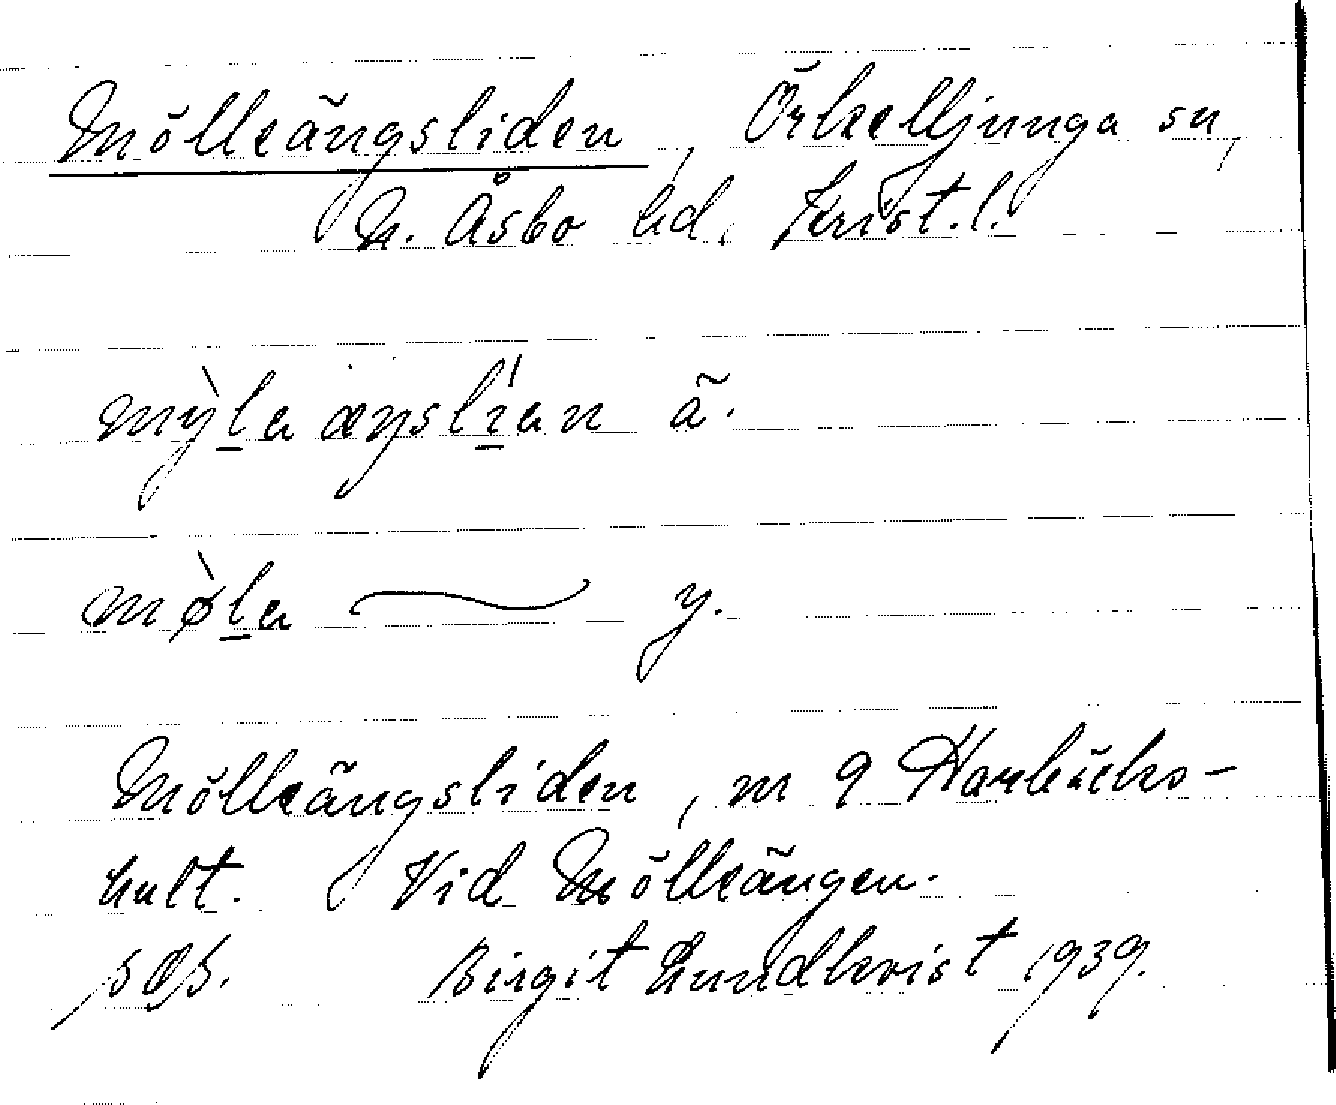 Mölleängsliden, Örkelljunga sn,
N. Åsbo hd. Krist. l.
mỳl̲a æŋslí̲an ä.
mø̀l̲a ~ y.
Mölleängsliden, m 9 Harbäcks-
hult. Vid Mölleängen.
Birgit Lundkvist 1939.